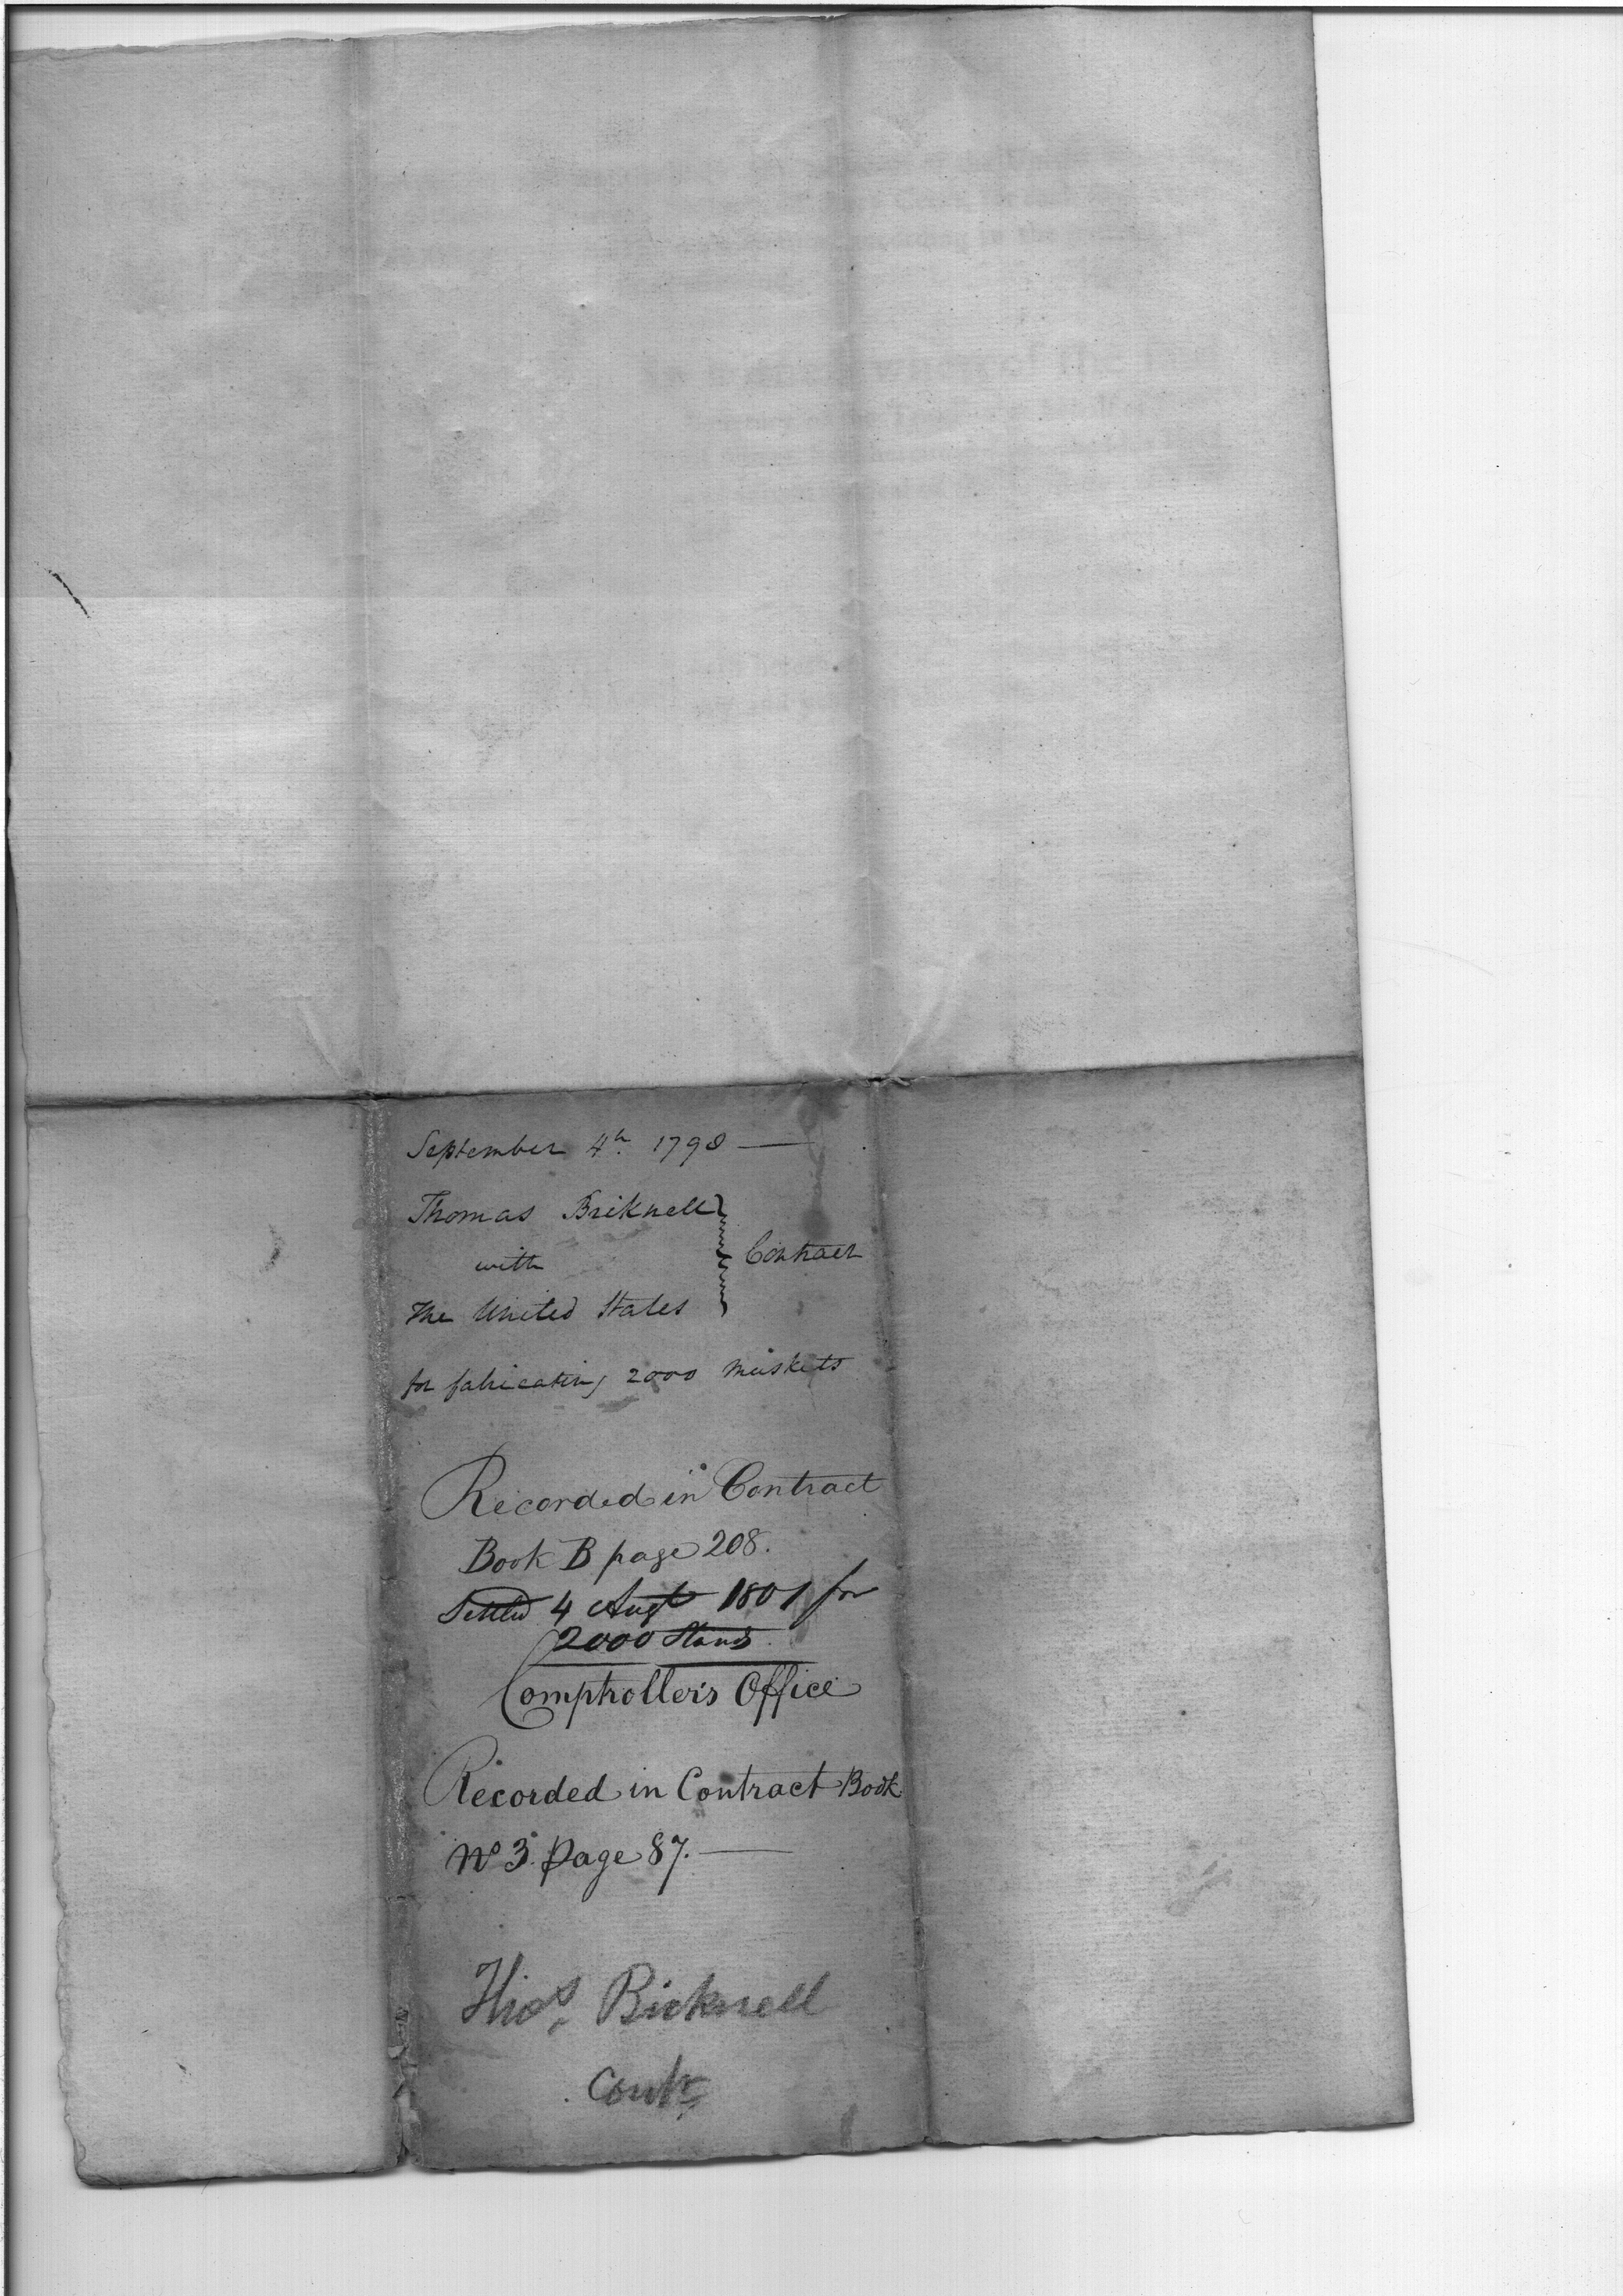 September 4th. 1798 —
Thomas Bricknell
with
Contract
The United States
for fabricating 2000 Muskets
Recorded in Contract
Book B page 208.
Settled 4 Augt 1801 for
2000 Stands.
Comptroller's Office
Recorded in Contract Book
No 3. page 87. —
Thos. Bicknell
Contr